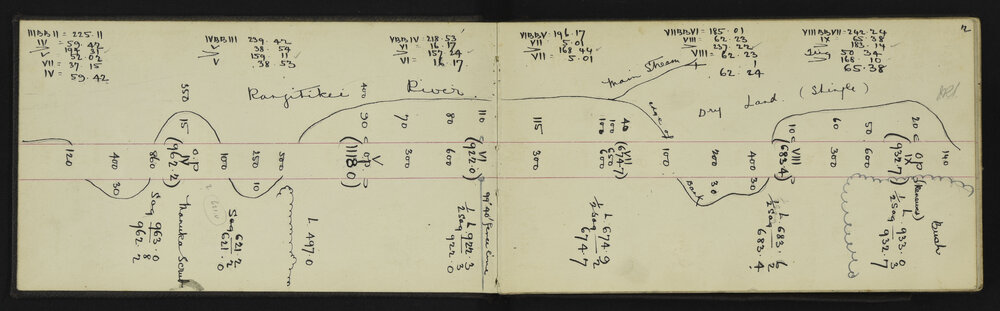 IIIBB II = 225.11
IV = 59.42
V 52.02
VII = 37.15
IV = 59.42
VBB III 239.42
V 38.54
159.11
V 38.53
VBB IV = 218.53
VI = 16.17
157.24
VI = 16.17
VIIBBV = 196.17
VII = 5.01
168.44
VII = 5.01
VIIBBVI = 185.01
VIII = 62.23
237.22
VIII = 62.23
1
62.24
VIIIBBVII = 242.24
IX 65.38
183.14
50.34
168.10
65.38
12
Rangitikei River
Main Stream
edge of
Dry Land (Shingle)
Bank
350
15
400
20
70
80
110
115
40
100
100
10
60
50
20
120
400
860
OP
IV
(962.2)
100
250
500
OP
V
(1118.0)
300
600
VI
(922.0)
300
600
650
VII
(674.7)
100
200
400
VIII
(683.4)
300
600
OP
IX
(932.7)
140
30
10
30
30
Manuka Scrub
Sag 963.0
8
962.2
Sag 621.2
2
621.0
L 497.0
99°40' Fence line
L 922.3
½ Sag 3
922.0
L 674.9
½ Sag 2
674.7
L 683.6
½ Sag 2
683.4
L 933.0
½ Sag 3
932.7
Bush